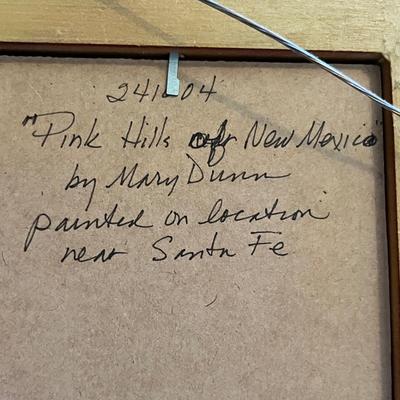 241604
"Pink Hills of New Mexico"
by Mary Dunn
painted on location
near Santa Fe